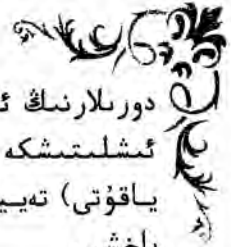 دورىلارنىڭ
ئىشلىتىشكە
ياقۇتى) تەييـ